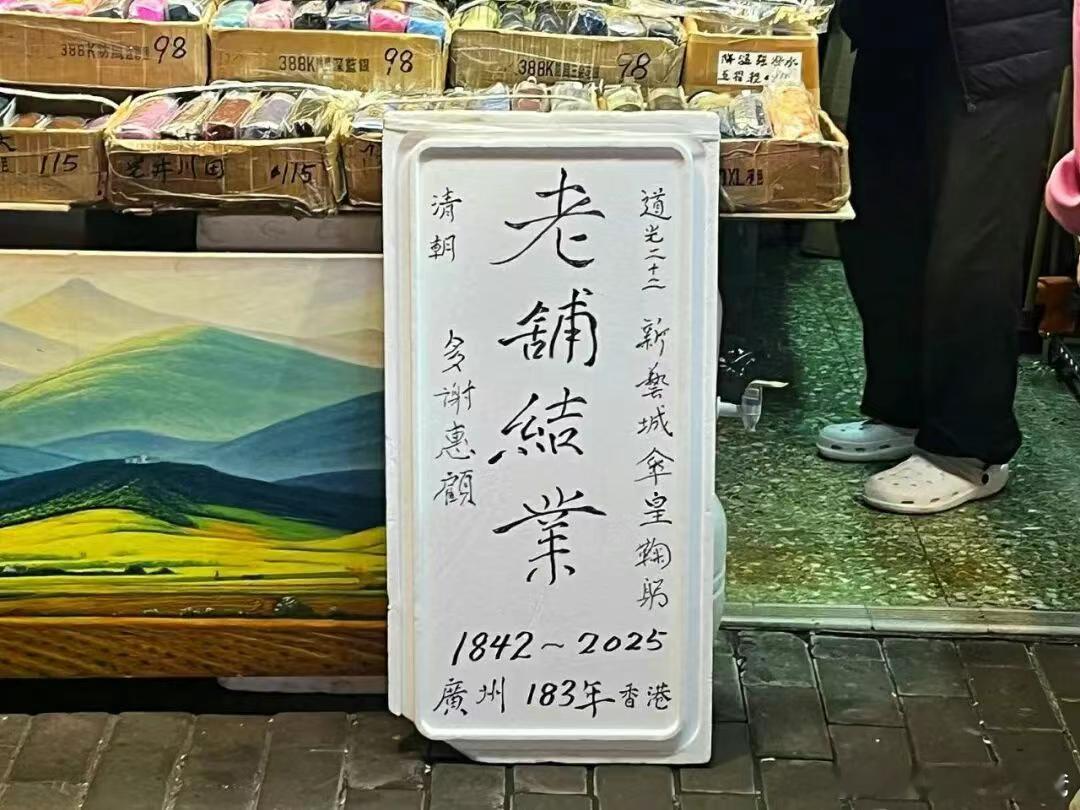 388K 98
388K 深藍銀 98
388K 98
115
川田 115
XL
道光二十二 新藝城傘皇鞠躬
老舖結業
清朝 多謝惠顧
1842~2025
廣州 183年 香港